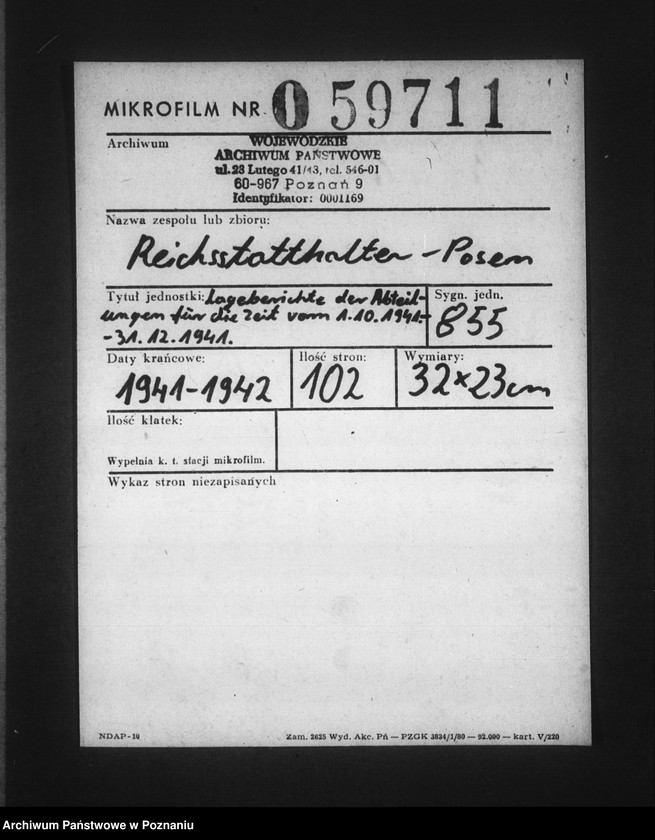 MIKROFILM NR. 0 59711
Archiwum
WOJEWÓDZKIE
ARCHIWUM PAŃSTWOWE
ul. 23 Lutego 41/43, tel. 546-01
60-967 Poznań 9
Identyfikator: 0001169
Nazwa zespołu lub zbioru:
Reichsstatthalter - Posen
Tytuł jednostki: Lageberichte der Abteil-
ungen für die Zeit vom 1.10.1941-
-31.12.1941.
Sygn. jedn.
855
Daty krańcowe:
1941-1942
Ilość stron:
102
Wymiary:
32×23cm
Ilość klatek:
Wypełnia k. t. stacji mikrofilm.
Wykaz stron niezapisanych
NDAP-10
Zam. 2625 Wyd. Akc. Pń — PZGK 3834/1/80 — 92.000 — kart. V/220
Archiwum Państwowe w Poznaniu